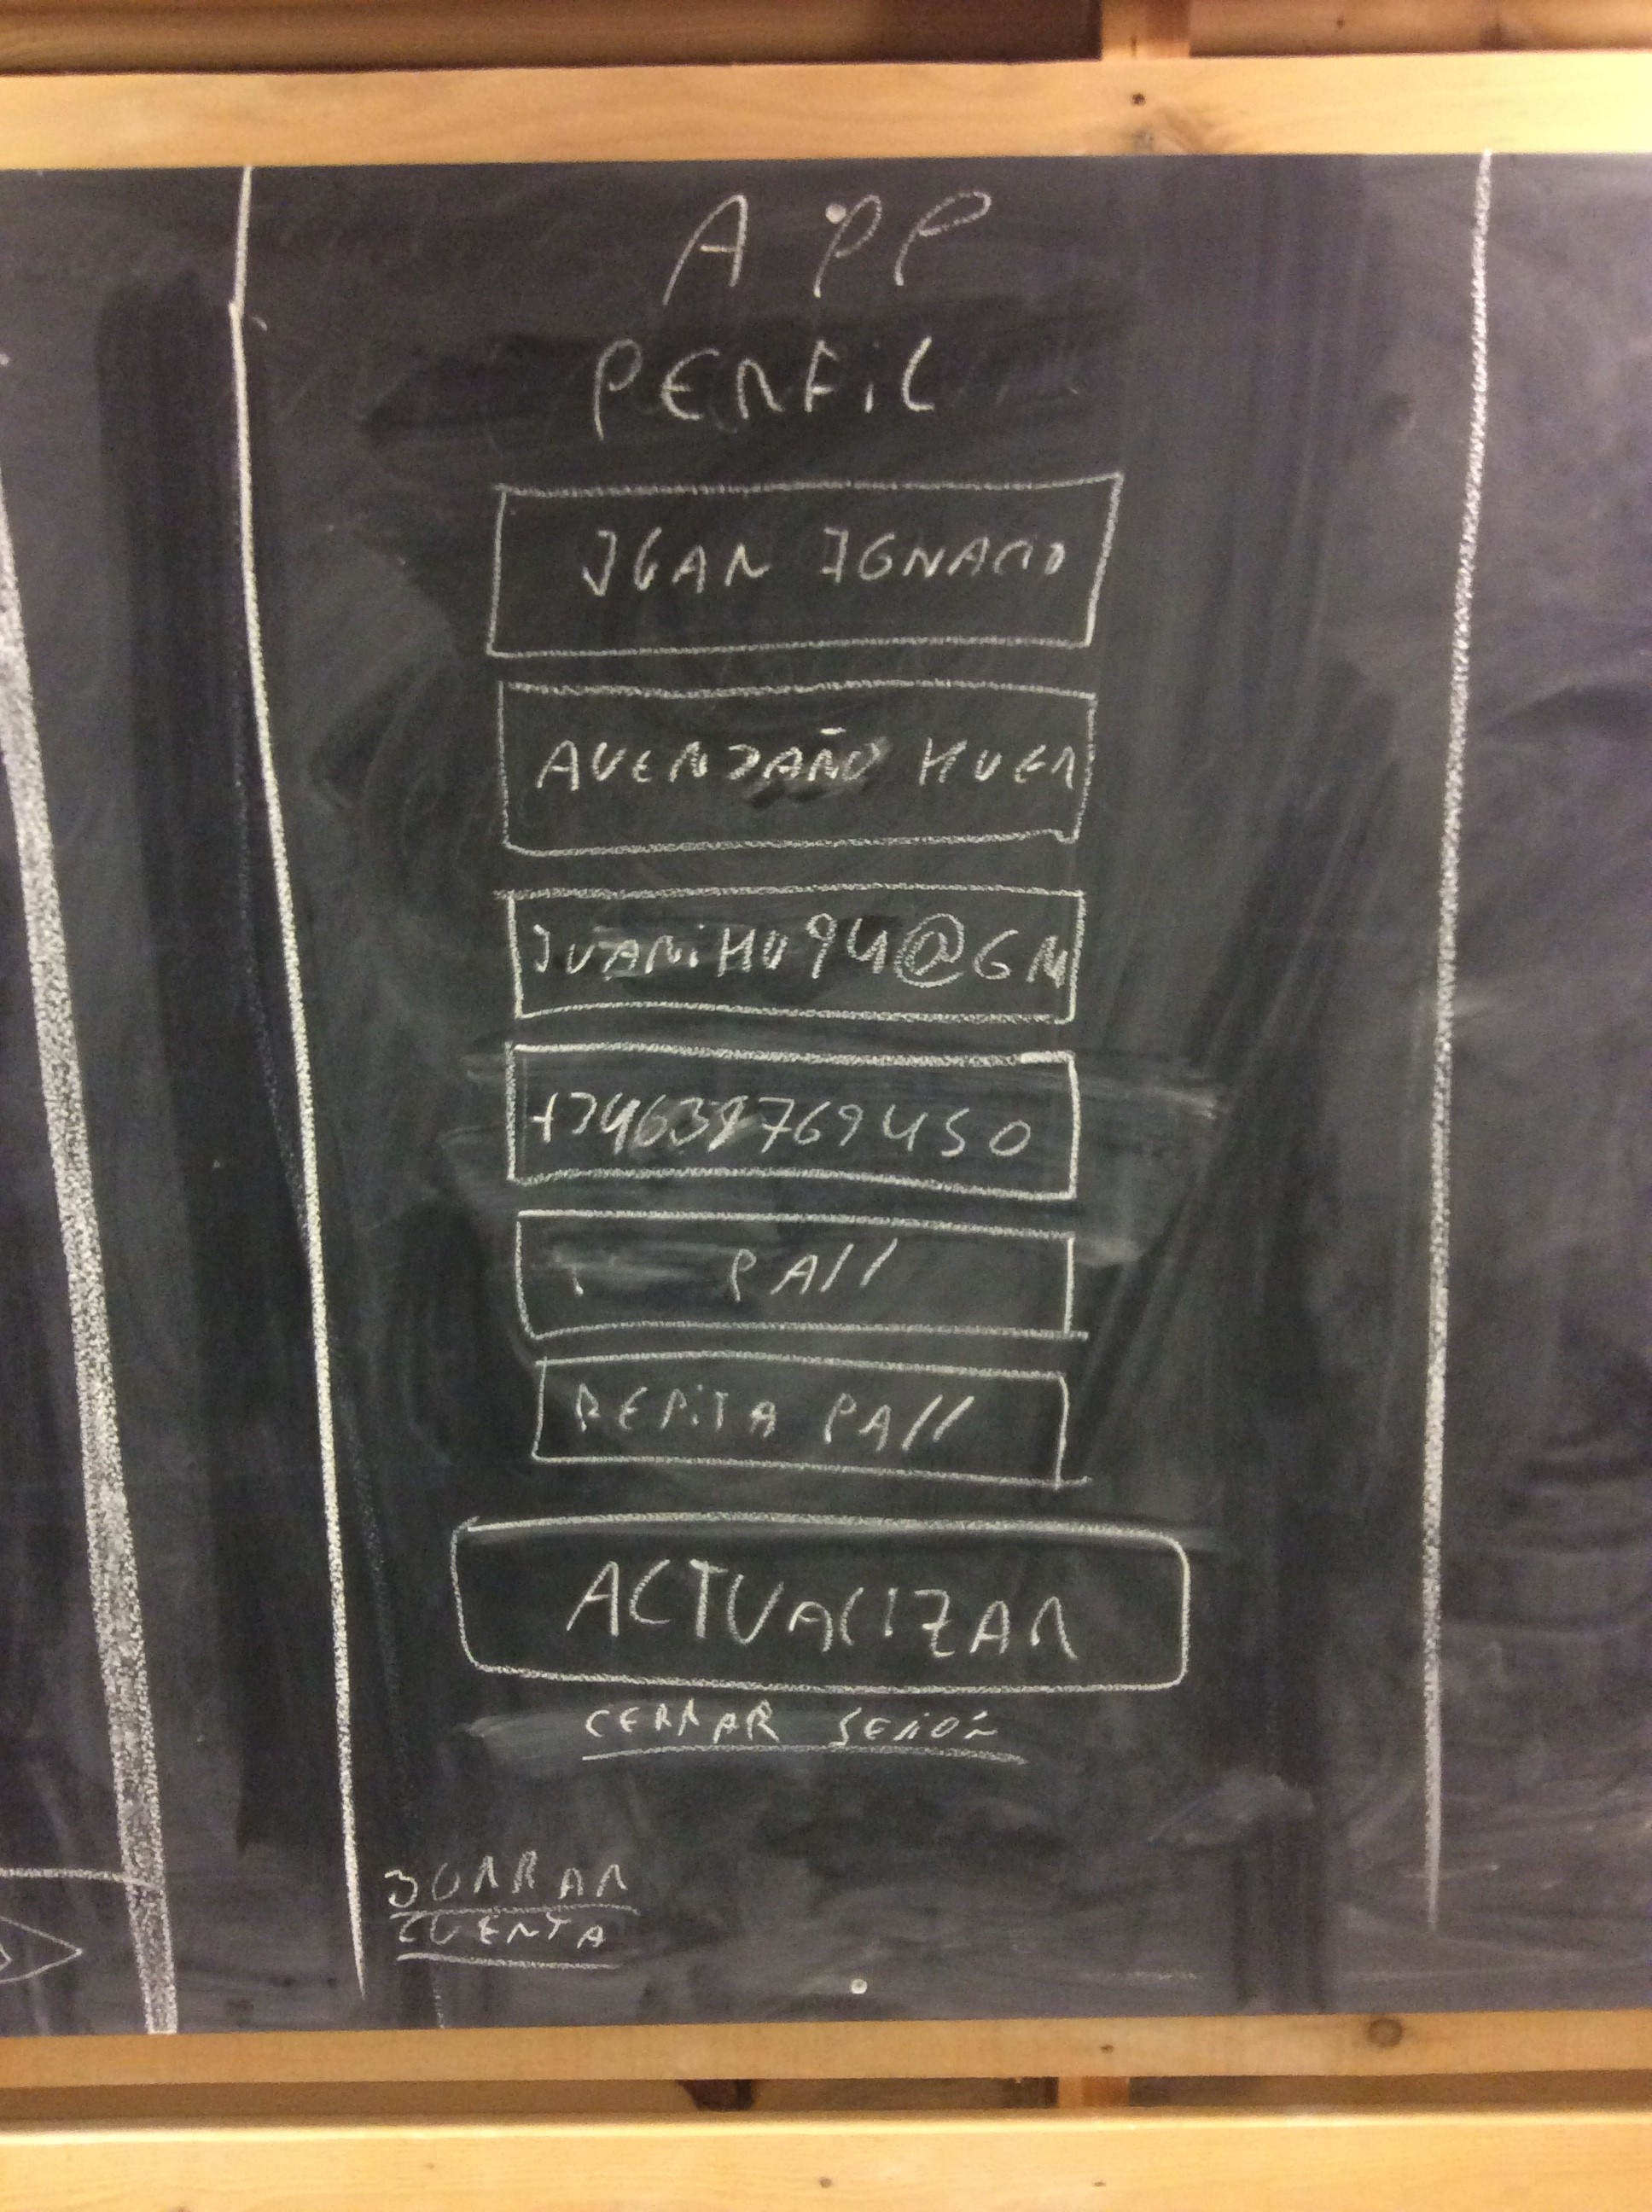 APP
PERFIL
JUAN IGNACIO
AVENDAÑO HUER
JUANIHU94@GM
PASS
REPITA PASS
ACTUALIZAR
CERRAR SESIÓN
BORRAR
CUENTA